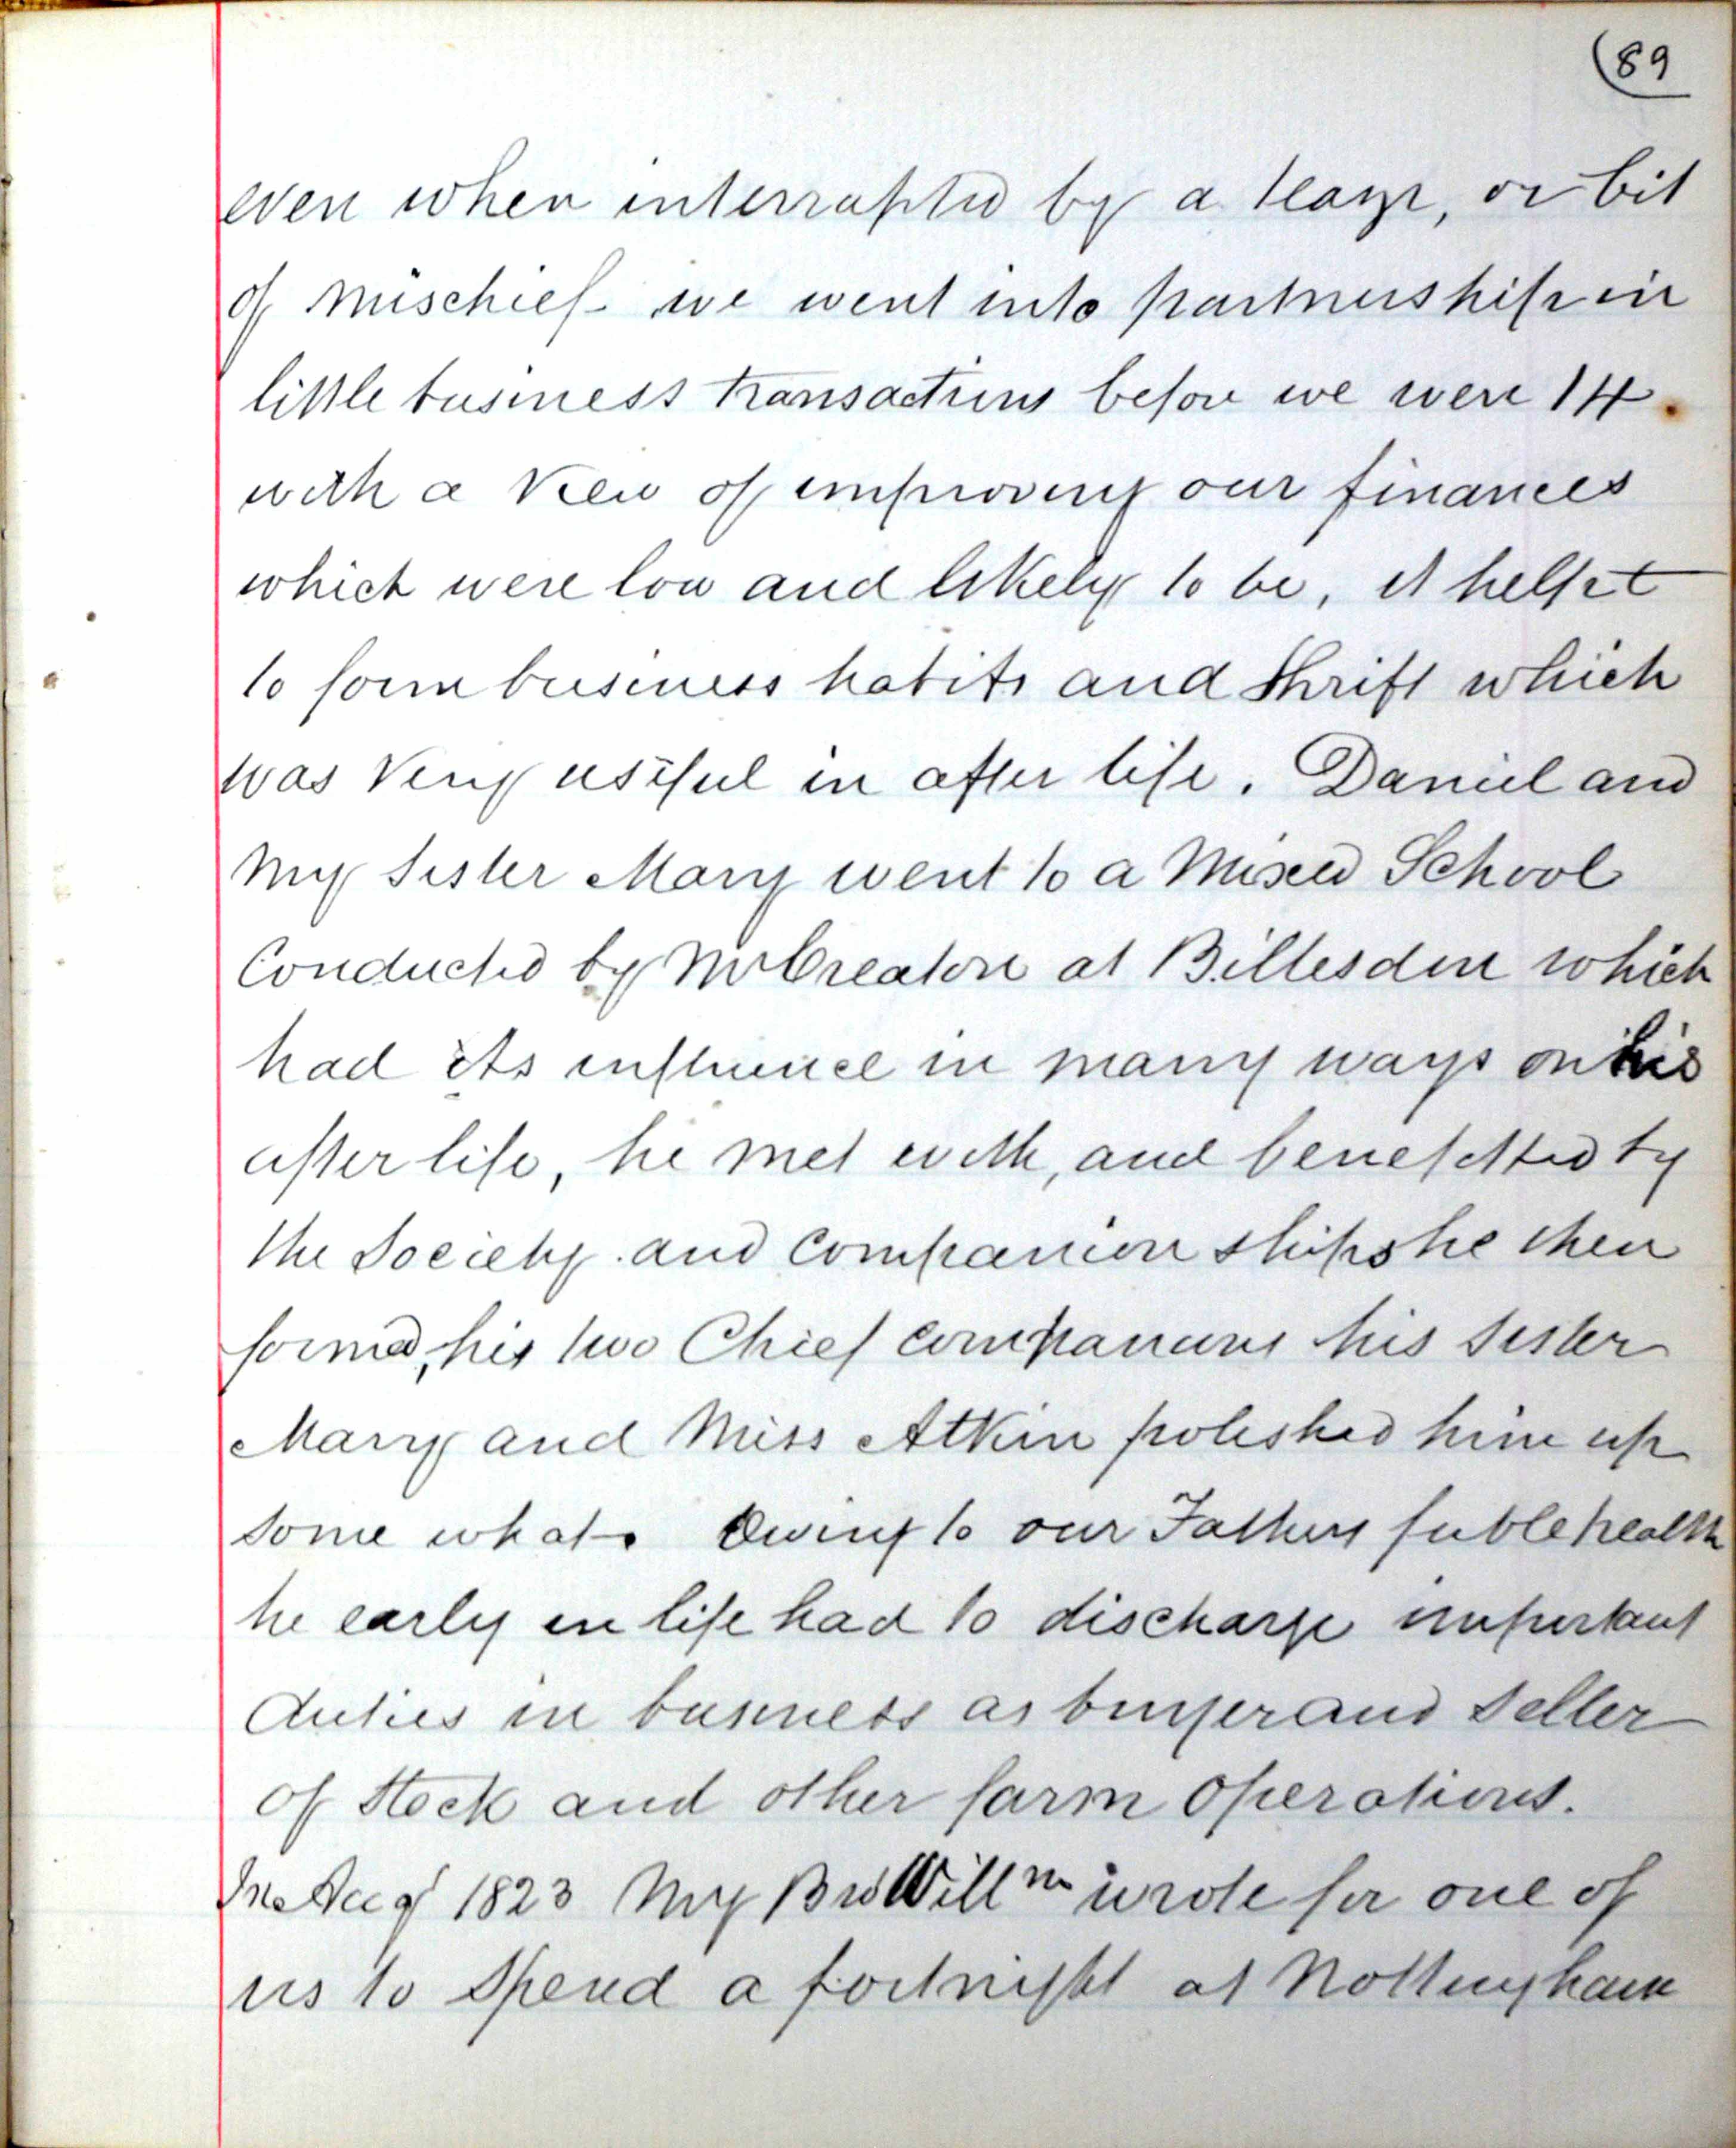 (89
even when interrupted by a tease, or bit
of mischief we went into partnership in
little business transactions before we were 14.
with a view of improving our finances
which were low and likely to be, it helpt
to form business habits and thrift which
was very useful in after life. Daniel and
my Sister Mary went to a Mixed School
Conducted by Mr Creaton at Billesdon which
had its influence in many ways on his
after life, he met with, and benefitted by
the Society and Companionships he then
formed, his two Chief companions his sister
Mary and Miss Atkin polished him up
some what. Owing to our Fathers feeble health
he early in life had to discharge important
duties in business as buyer and seller
of Stock and other farm operations.
In Aug 1823 My Bro Willm wrote for one of
us to spend a fortnight at Nottingham